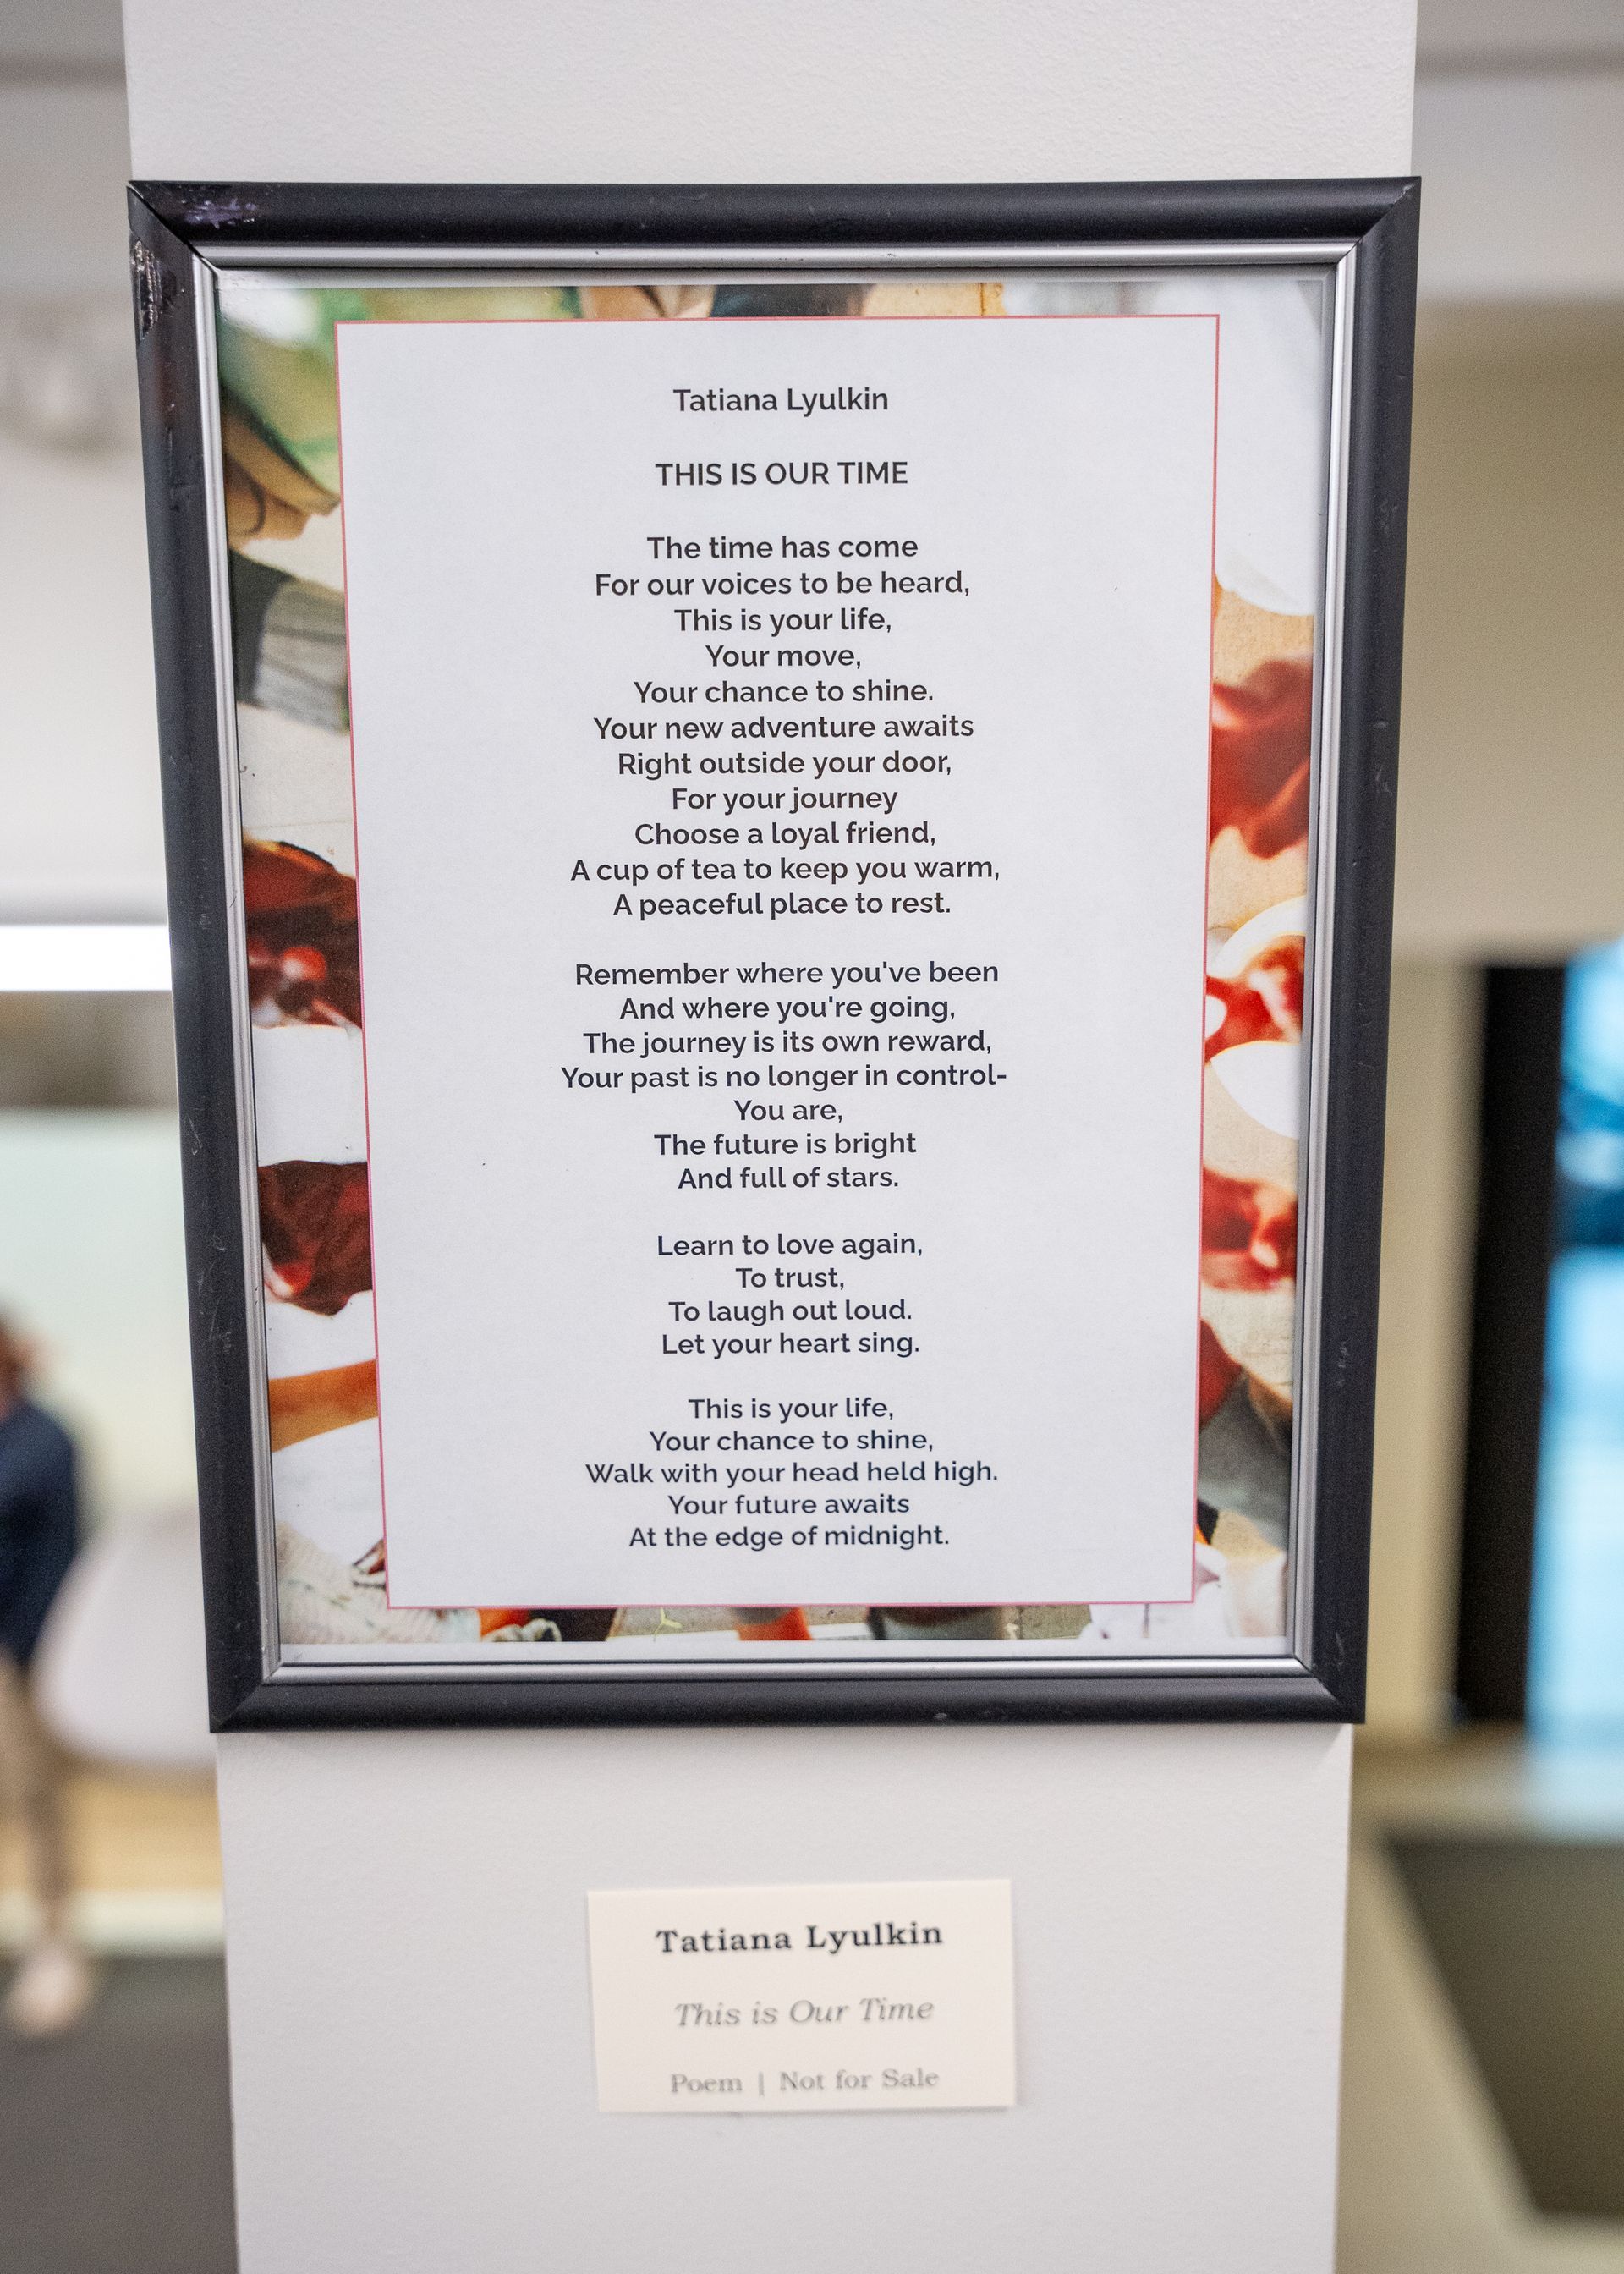 Tatiana Lyulkin
THIS IS OUR TIME
The time has come
For our voices to be heard,
This is your life,
Your move,
Your chance to shine.
Your new adventure awaits
Right outside your door,
For your journey
Choose a loyal friend,
A cup of tea to keep you warm,
A peaceful place to rest.
Remember where you've been
And where you're going,
The journey is its own reward,
Your past is no longer in control-
You are,
The future is bright
And full of stars.
Learn to love again,
To trust,
To laugh out loud.
Let your heart sing.
This is your life,
Your chance to shine,
Walk with your head held high.
Your future awaits
At the edge of midnight.
Tatiana Lyulkin
This is Our Time
Poem | Not for Sale